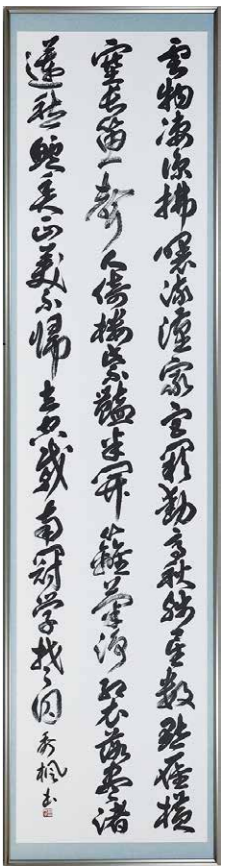 雲物凄涼拂曙流漢家宮闕動高秋残星数點雁横
塞長笛一聲人倚楼紫艶半開籬菊浄紅衣落盡渚
蓮愁鱸魚正美不帰去空戴南冠学楚囚 秀楓書